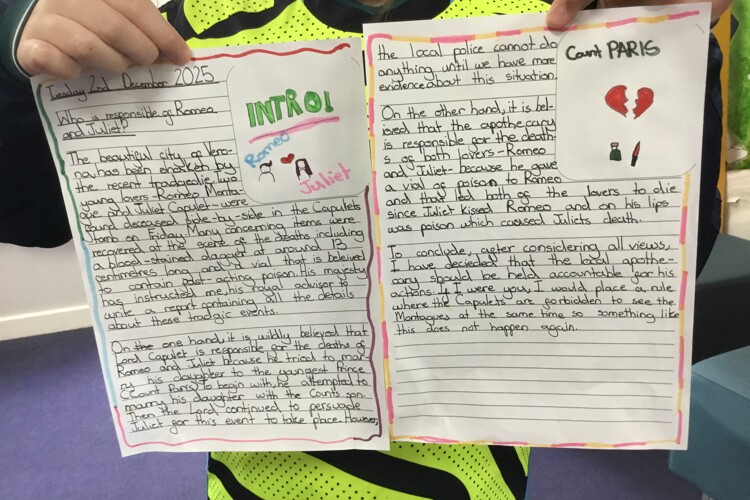 Tuesday 2nd December 2025
Who is responsible of Romeo
and Juliet?
INTRO!
Romeo
Juliet
The beautiful city of Vero-
na has been shaken by
the recent tradgedie. Two
young lovers-Romeo Monta-
gue and Juliet Capulet-were
found deceased side-by-side in the Capulets
tomb on Friday. Many concerning items were
recovered at the scene of the deaths including
a blood-stained dagger at around 13
centimetres long and a vial that is beleived
to contain fast-acting poison. His majesty
has instructed me, his royal advisor to
write a report containing all the details
about these tradgic events.
On the one hand, it is wildly believed that
Lord Capulet is responsible for the deaths of
Romeo and Juliet because he tried to mar-
ry his daughter to the youngest Prince
(Count Paris). To begin with, he attempted to
marry his daughter with the Counts son.
Then the Lord continued to persuade
Juliet for this event to take place. However,
the local police cannot do
anything until we have more
evidence about this situation.
Count PARIS
On the other hand, it is bel-
ieved that the apothecary
is responsible for the death
s of both lovers-Romeo
and Juliet-because he gave
a vial of poison to Romeo
and that led both of the lovers to die
since Juliet kissed Romeo and on his lips
was poison which caused Juliets death.
To conclude, after considering all views,
I have decieded that the local apothe-
cary should be held accountable for his
actions. If I were you, I would place a rule
where the Capulets are forbidden to see the
Montagues at the same time so something like
this does not happen again.